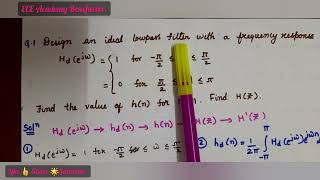 ECE Academy Benefactor
Q.1 Design an ideal lowpass filter with a frequency response
Hd(e^jω) = 1 for -π/2 ≤ ≤ π/2
= 0 for π/2 ≤ ≤ π
Find the value of h(n) for 1. Find H(Z).
Solⁿ Hd(e^jω) → hd(n) → h(n) → H(Z) → H'(Z)
① Hd(e^jω) = 1 for -π/2 ≤ ω ≤ π/2
② hd(n) = 1/2π ∫ -π π Hd(e^jω) e^jωn